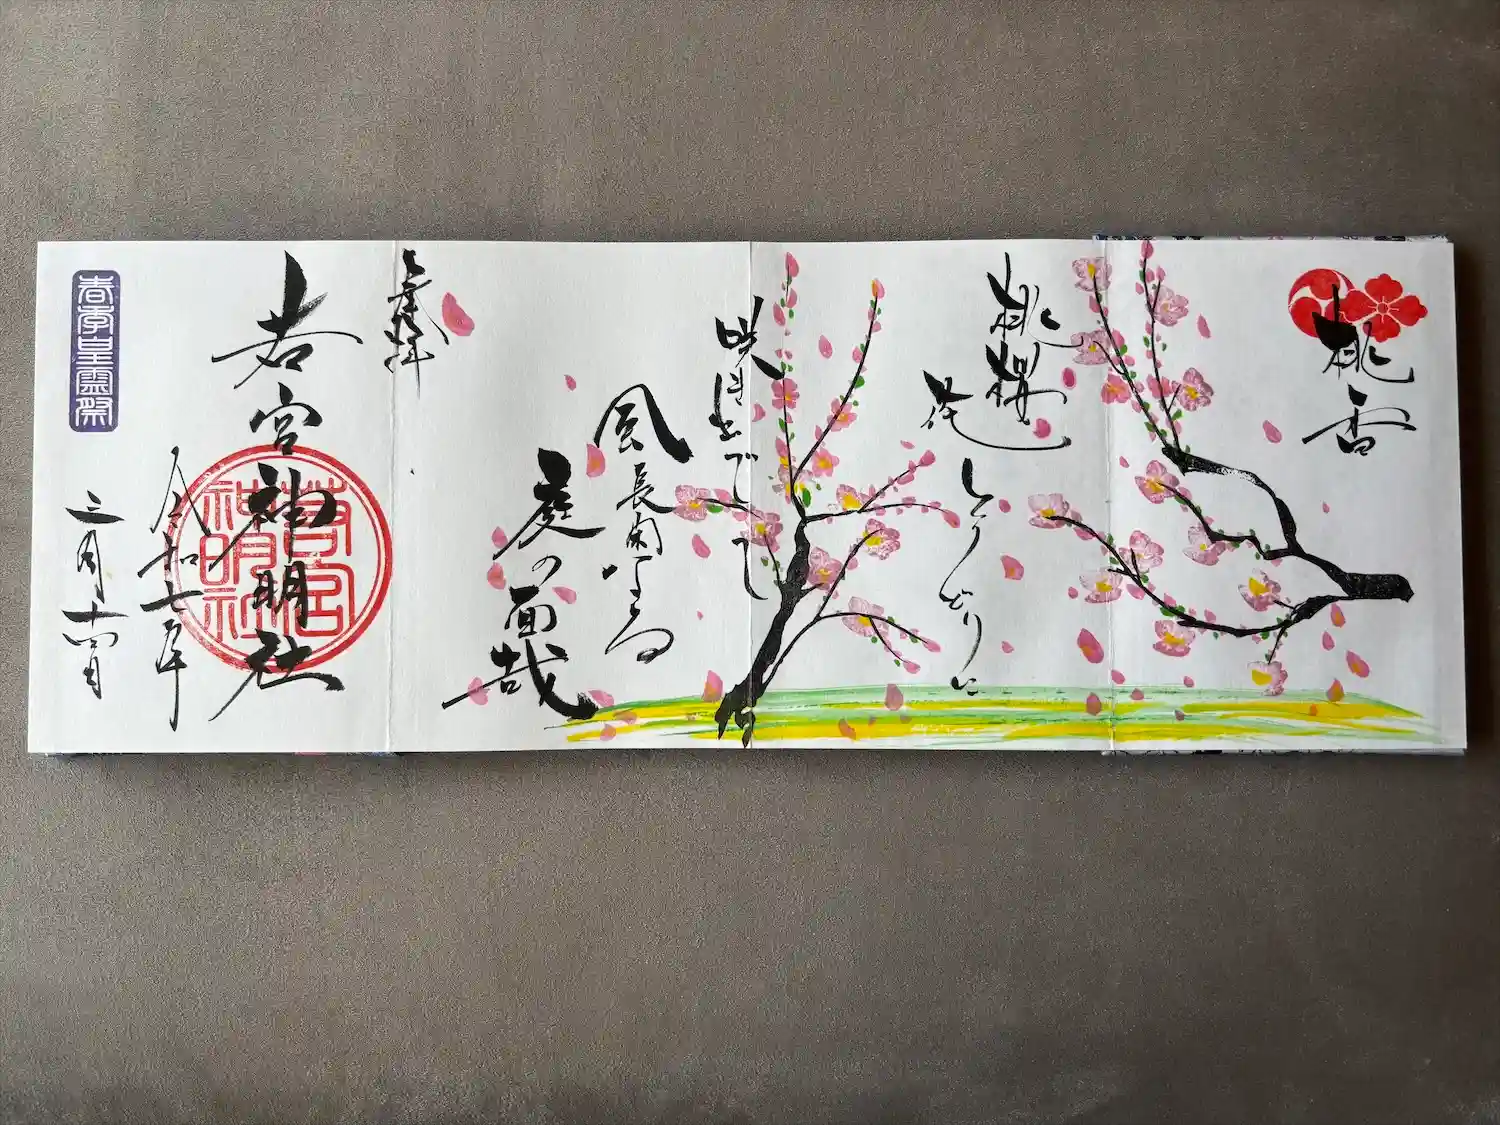 桃香
桃桜
花
とりどりに
咲きいでて
風長閑なる
庭の面哉
奉拝
若宮神明社
若宮
神明社
令和七年
三月十四日
春季皇霊祭